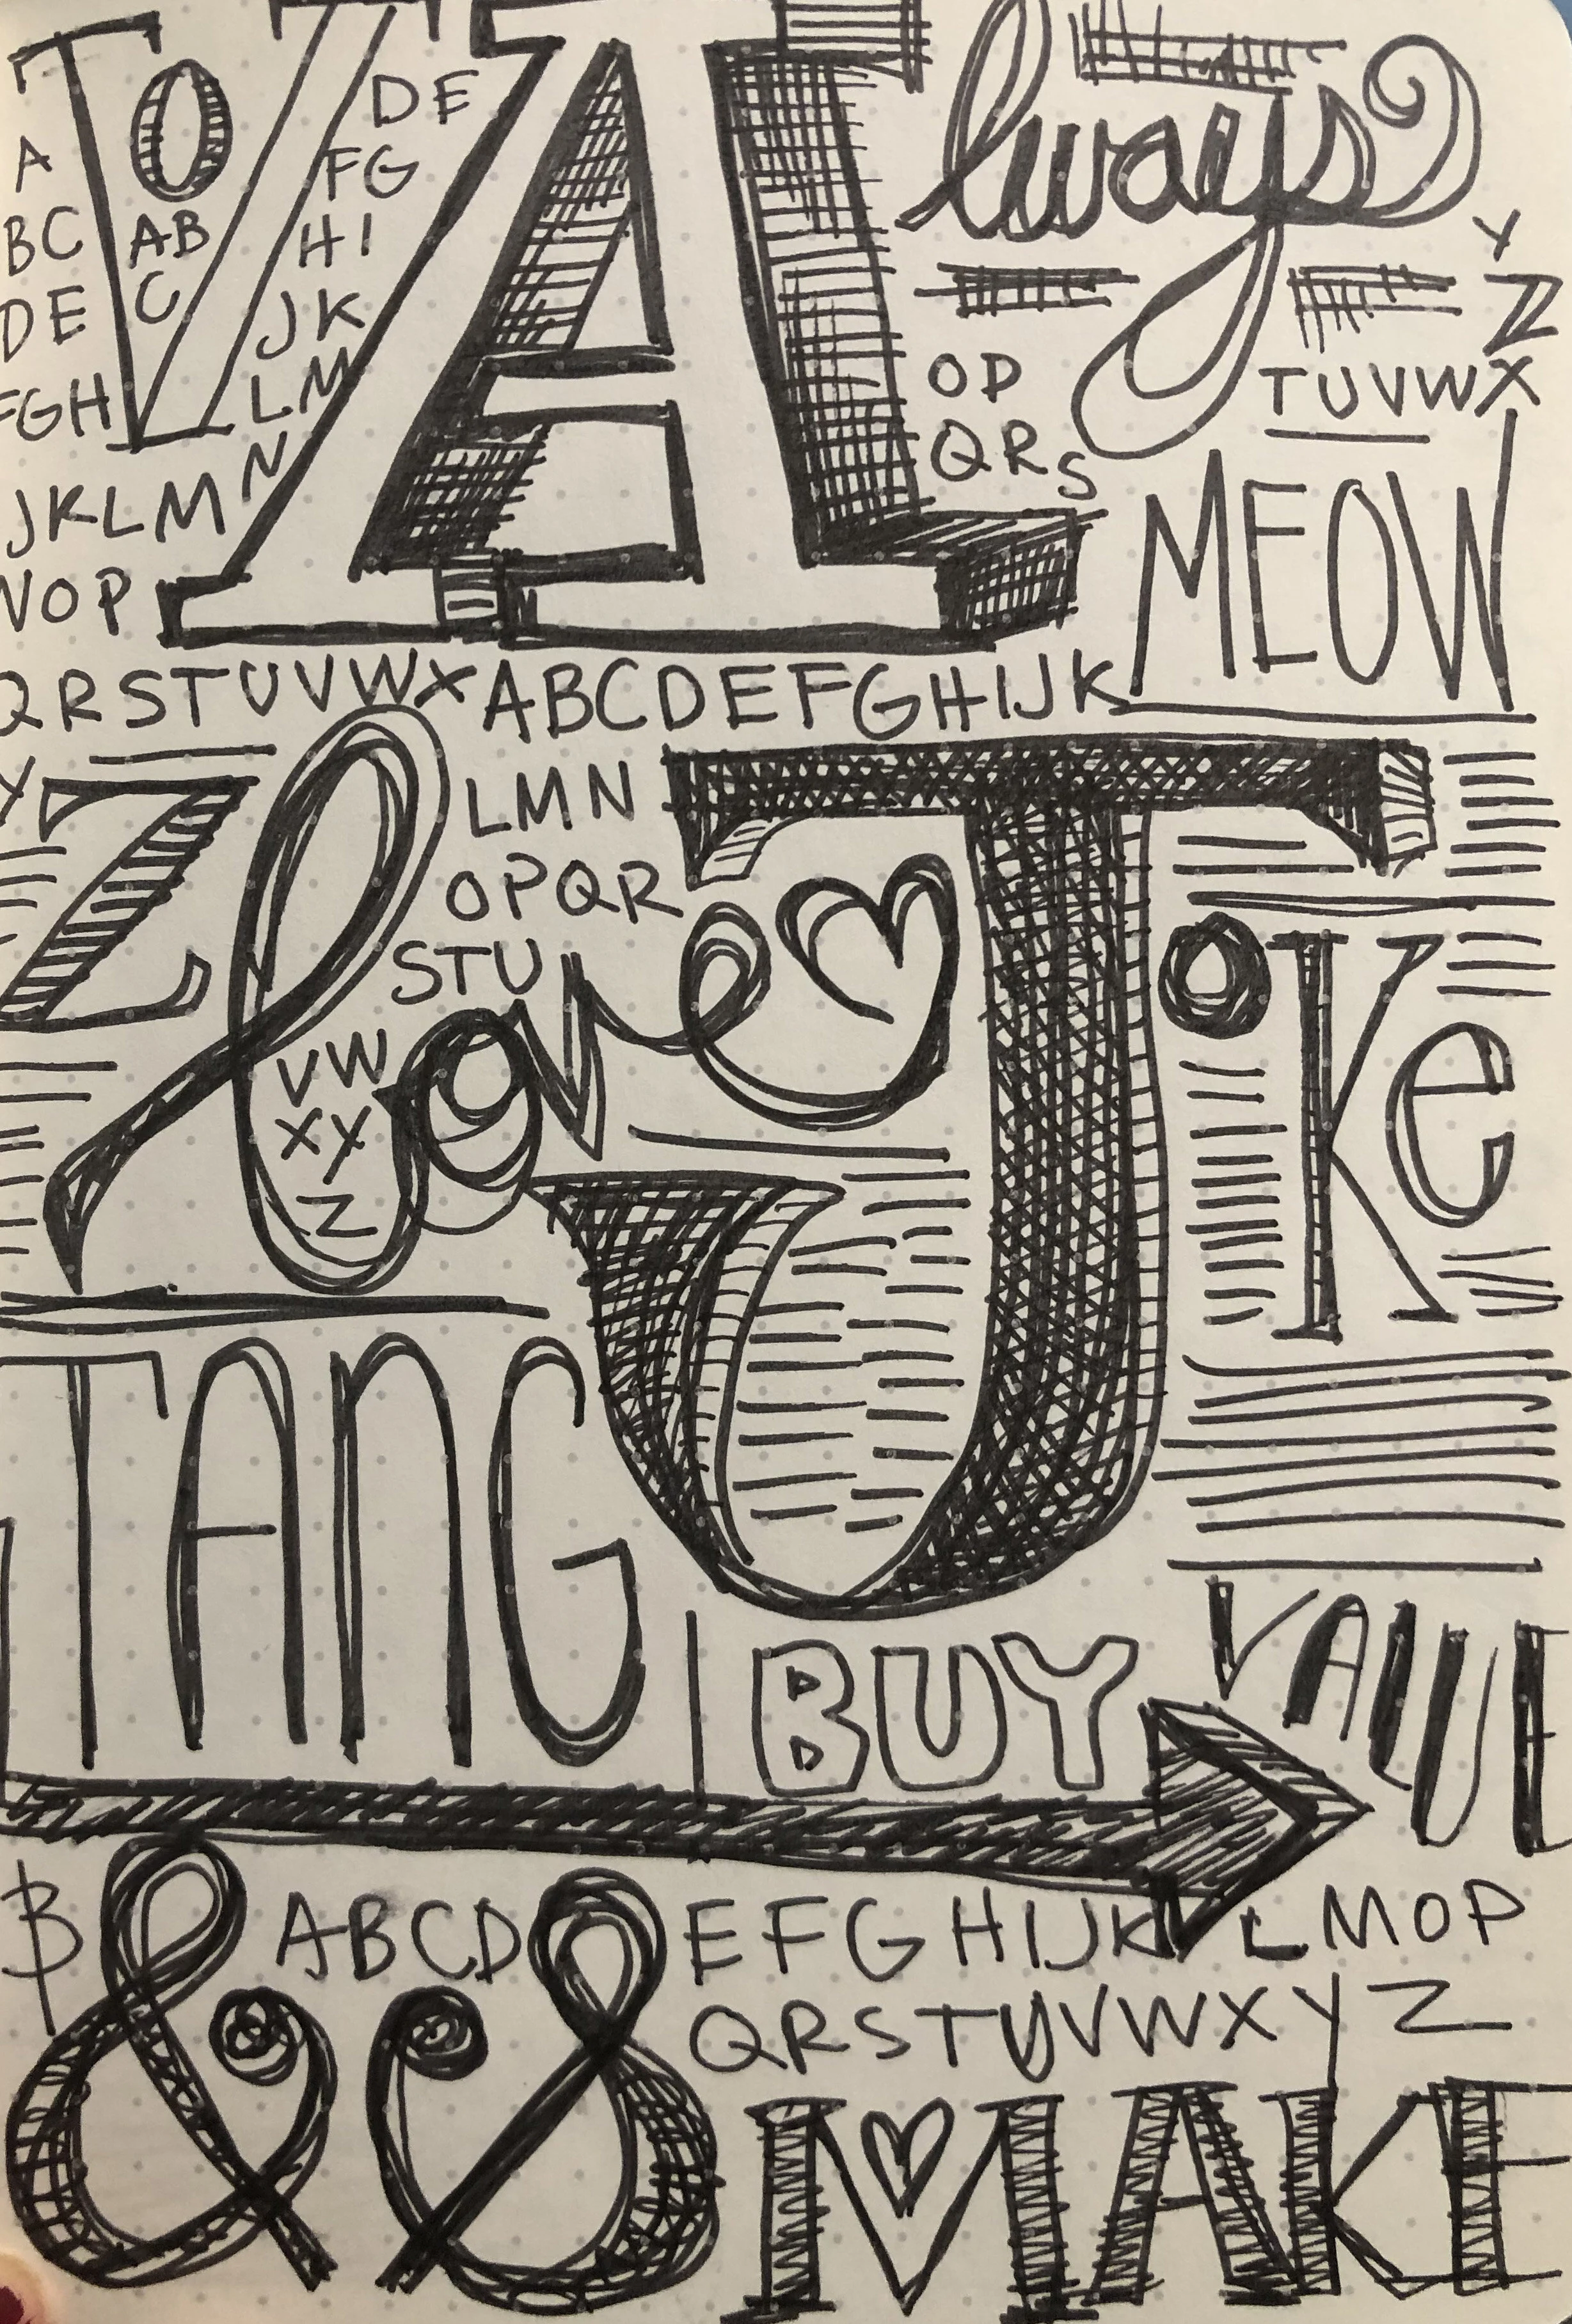 TO
A
BC
DE
FGH
JKLM
NOP
QRSTUVWX
Y
Z
AB
C
DE
FG
HI
JK
LM
N
Always
OP
QRS
TUVWX
Y
Z
MEOW
ABCDEFGHIJK
LMN
OPQR
STU
VW
XY
Z
love
J
Ke
TANG
BUY
VALUE
B
&
ABCD
&
EFGHIJKLMOP
QRSTUVWXYZ
MAKE